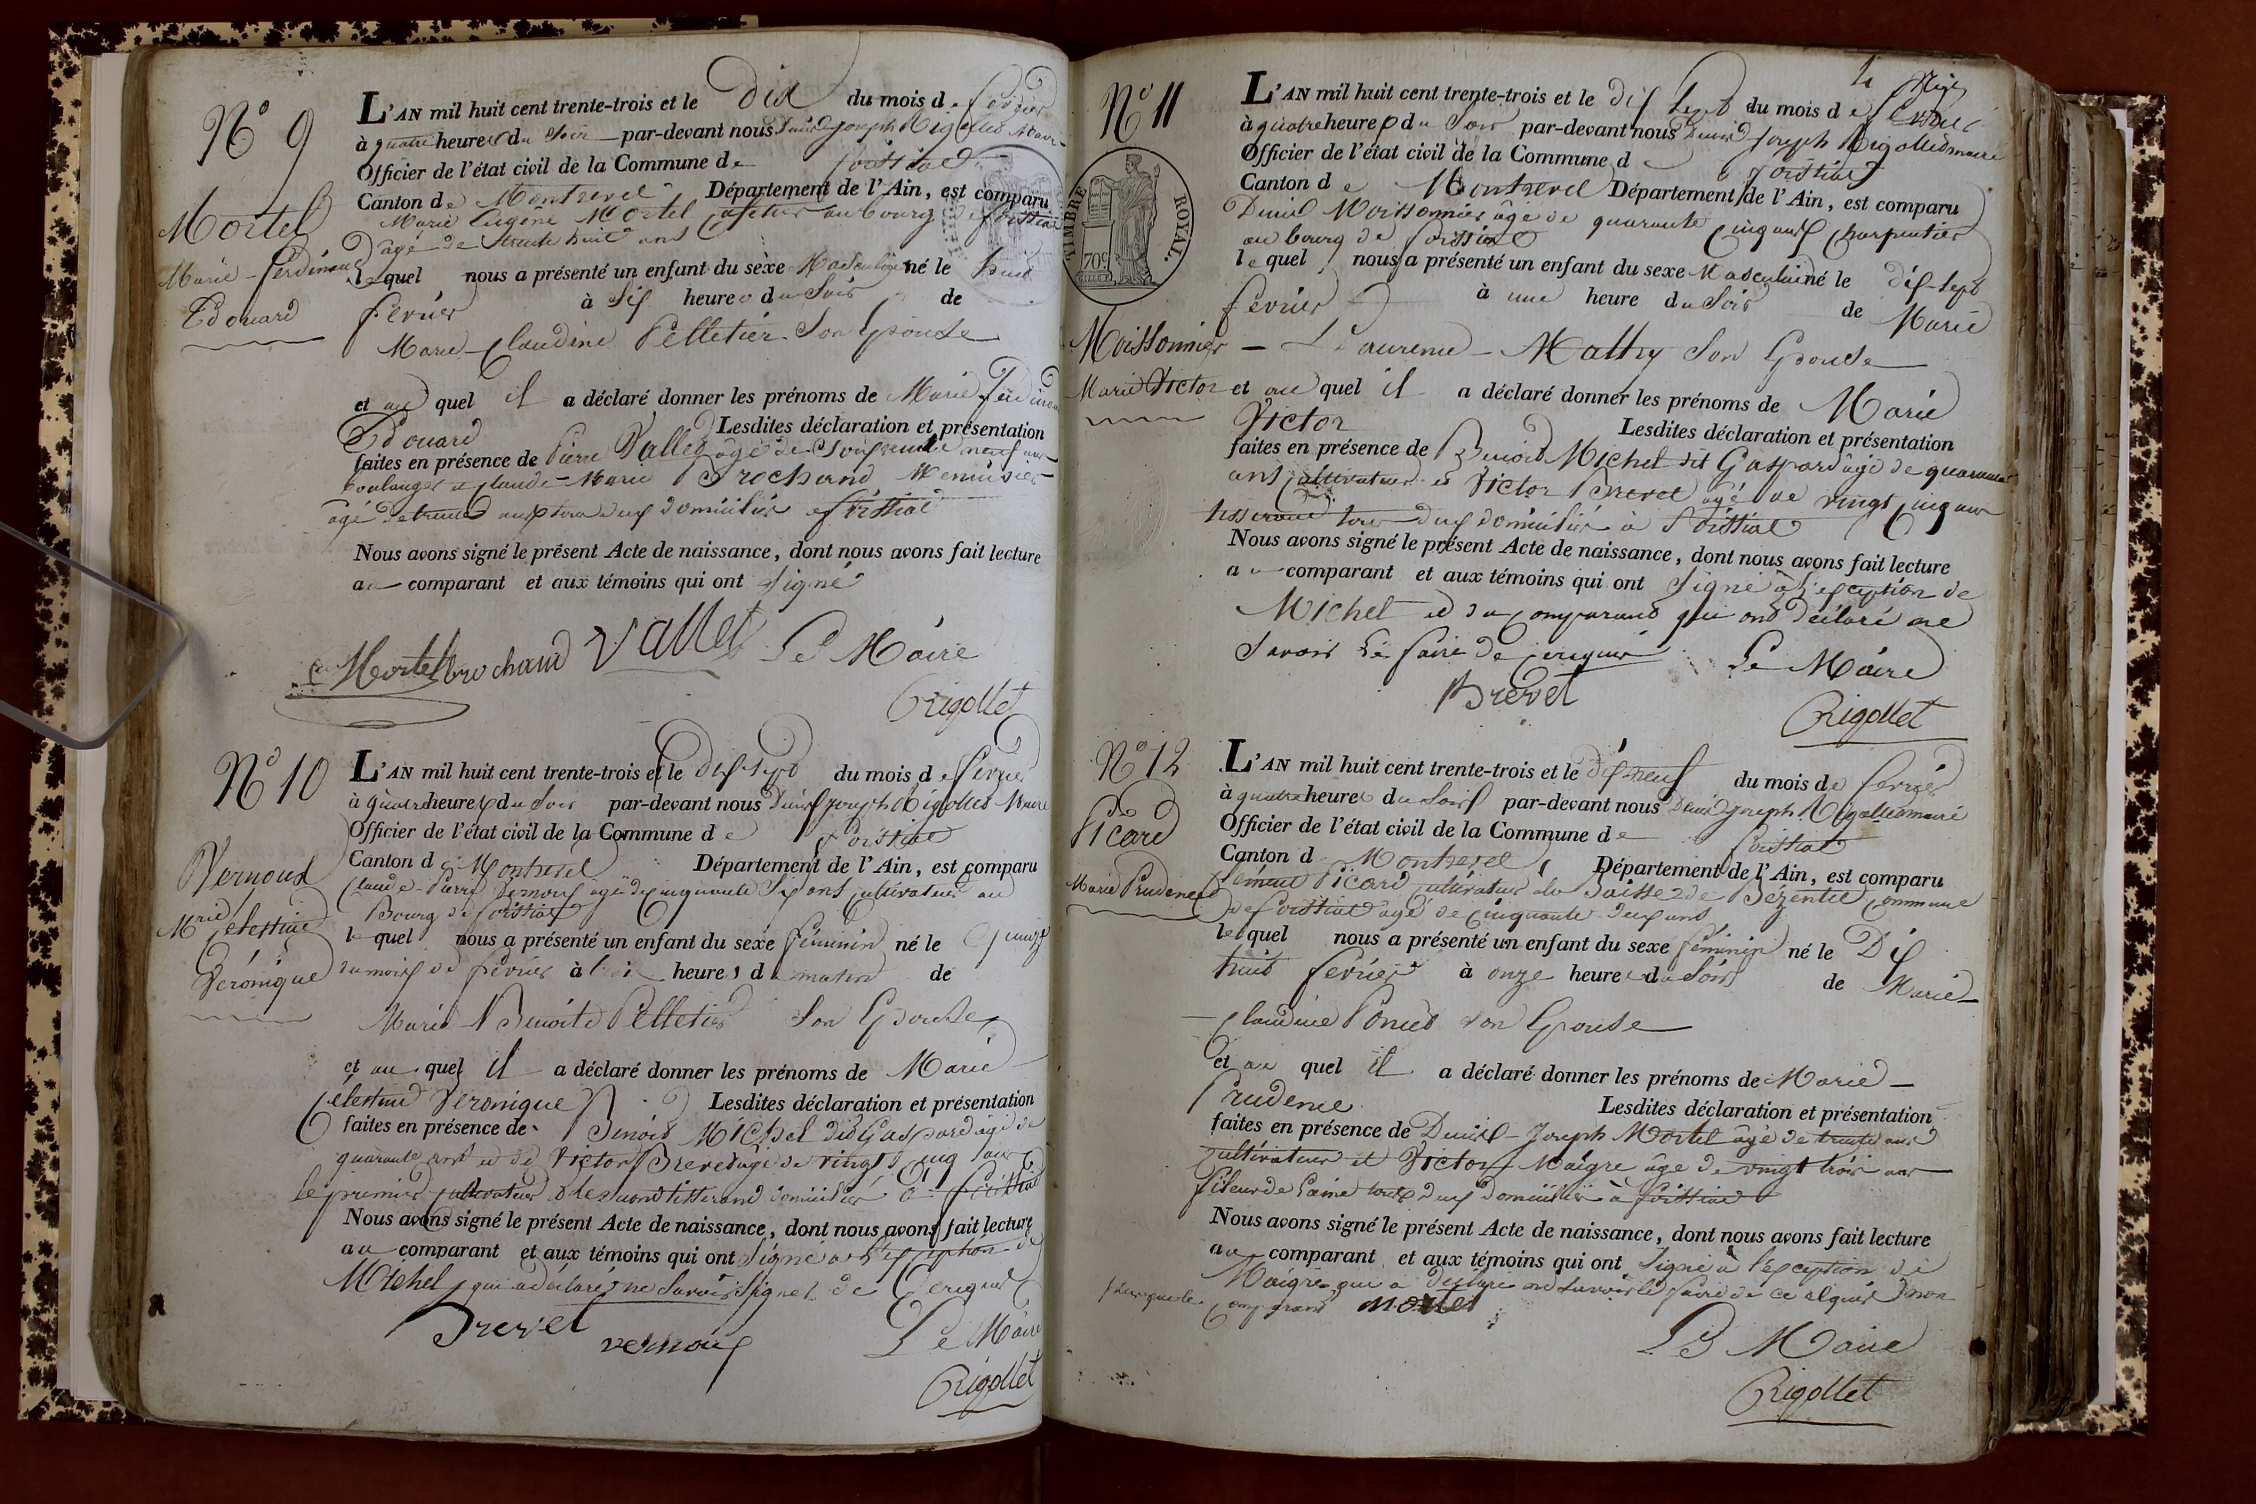 N° 9
Mortel
Marie-Ferdinand
Edouard
L'AN mil huit cent trente-trois et le Dix du mois de fevrier
à quatre heures du Soir par-devant nous Denis Joseph Rigollet Maire
Officier de l'état civil de la Commune de foissiat
Canton de Montrevel Département de l'Ain, est comparu
Marie Eugène Mortel au bourg de foissiat
âgé de trente huit ans
lequel nous a présenté un enfant du sexe Masculin né le huit
fevrier à Six heures du Soir de
Marie-Claudine Pelletier Son Epouse
et au quel il a déclaré donner les prénoms de Marie Ferdinand
Edouard Lesdites déclaration et présentation
faites en présence de Pierre Vallet âgé de neuf ans
boulanger et Claude-Marie Brochand Menuisier
âgé de trente ans tous deux domiciliés à foissiat
Nous avons signé le présent Acte de naissance, dont nous avons fait lecture
au comparant et aux témoins qui ont signé
Mortel brochand Vallet Le Maire
Rigollet
N° 10
Vernoux
Mrie Celestine
Véronique
L'AN mil huit cent trente-trois et le dix sept du mois de fevrier
à quatre heures du Soir par-devant nous Denis Joseph Rigollet Maire
Officier de l'état civil de la Commune de foissiat
Canton de Montrevel Département de l'Ain, est comparu
Claude-Pierre Vernoux âgé de cinquante Six ans cultivateur au
Bourg de foissiat
lequel nous a présenté un enfant du sexe féminin né le quinze
du mois de fevrier à heures du matin de
Marie Benoite Pelletier Son Epouse
et au quel il a déclaré donner les prénoms de Marie
Célestine Veronique Lesdites déclaration et présentation
faites en présence de Benoit Michel dit Gaspard âgé de
quarante ans et de Victor Brevet âgé de vingt cinq ans
le premier cultivateur et le second tisserand domiciliés à foissiat
Nous avons signé le présent Acte de naissance, dont nous avons fait lecture
au comparant et aux témoins qui ont Signé à l'exception de
Michel qui a déclaré ne Savoir Signer de ce requis
Brevet vernoux Le Maire
Rigollet
N° 11
Moissonnier
Marie Victor
TIMBRE ROYAL
70c
L'AN mil huit cent trente-trois et le dix Sept du mois de fevrier
à quatre heures du Soir par-devant nous Denis Joseph Rigollet maire
Officier de l'état civil de la Commune de foissiat
Canton de Montrevel Département de l'Ain, est comparu
Denis Moissonnier âgé de quarante Cinq ans Charpentier
au bourg de foissiat
lequel nous a présenté un enfant du sexe Masculin né le dix-sept
fevrier à une heure du Soir de Marie
Laurence - Mathy Son Epouse
et au quel il a déclaré donner les prénoms de Marie
Victor Lesdites déclaration et présentation
faites en présence de Benoit Michel dit Gaspard âgé de quarante
ans cultivateur et Victor Brevet âgé de vingt cinq ans
tisserand tous deux domiciliés à foissiat
Nous avons signé le présent Acte de naissance, dont nous avons fait lecture
au comparant et aux témoins qui ont Signé à l'exception de
Michel et du Comparant qui ont déclaré ne
Savoir le faire de ce requis Le Maire
Brevet
Rigollet
N° 12
Picard
Marie Prudence
L'AN mil huit cent trente-trois et le dix neuf du mois de fevrier
à quatre heures du Soir par-devant nous Denis Joseph Rigollet maire
Officier de l'état civil de la Commune de foissiat
Canton d Montrevel Département de l'Ain, est comparu
Clément Picard cultivateur de Bézentet Commune
de foissiat âgé de Cinquante-deux ans
lequel nous a présenté un enfant du sexe féminin né le Dix
huit fevrier à onze heures du Soir de Marie-
Claudine Poncet son Epouse
et au quel il a déclaré donner les prénoms de Marie-
Prudence Lesdites déclaration et présentation
faites en présence de Denis-Joseph Mortel âgé de trente ans
cultivateur et Victor Maigre âgé de vingt trois ans
fileur de Laine tous deux domiciliés à foissiat
Nous avons signé le présent Acte de naissance, dont nous avons fait lecture
au comparant et aux témoins qui ont Signé à l'exception de
Maigre qui a déclaré ne Savoir le faire de ce requis
Comparant Mortel
Le Maire
Rigollet